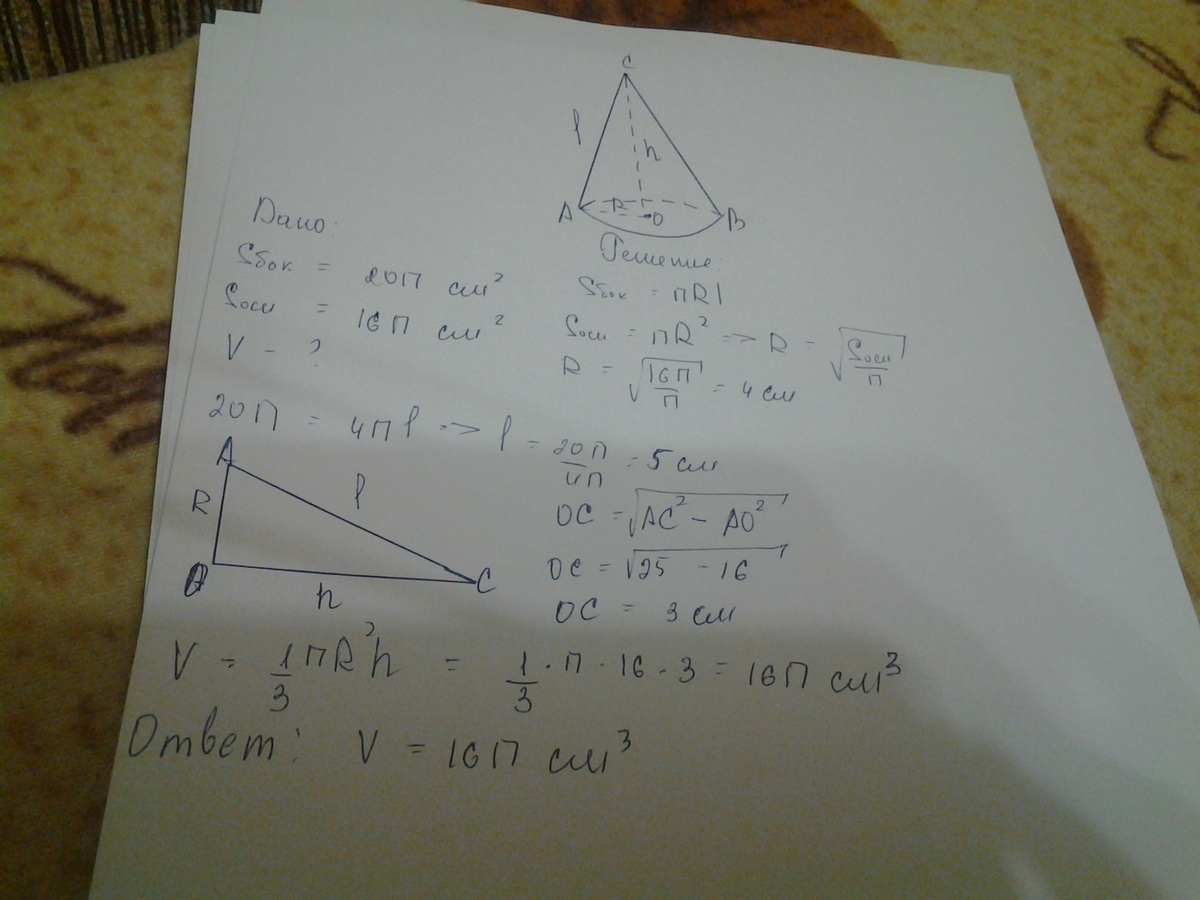 C
l
h
A R O B
Дано:
Sбок = 20П см²
Sосн = 16П см²
V - ?
Решение:
Sбок = ПRl
Sосн = ПR² => R = √(Sосн/П)
R = √(16П/П) = 4 см
20П = 4Пl => l = 20П/4П = 5 см
A
R
l
O
h
C
OC = √(AC² - AO²)
OC = √(25 - 16)
OC = 3 см
V = 1/3 ПR²h = 1/3 · П · 16 · 3 = 16П см³
Ответ: V = 16П см³